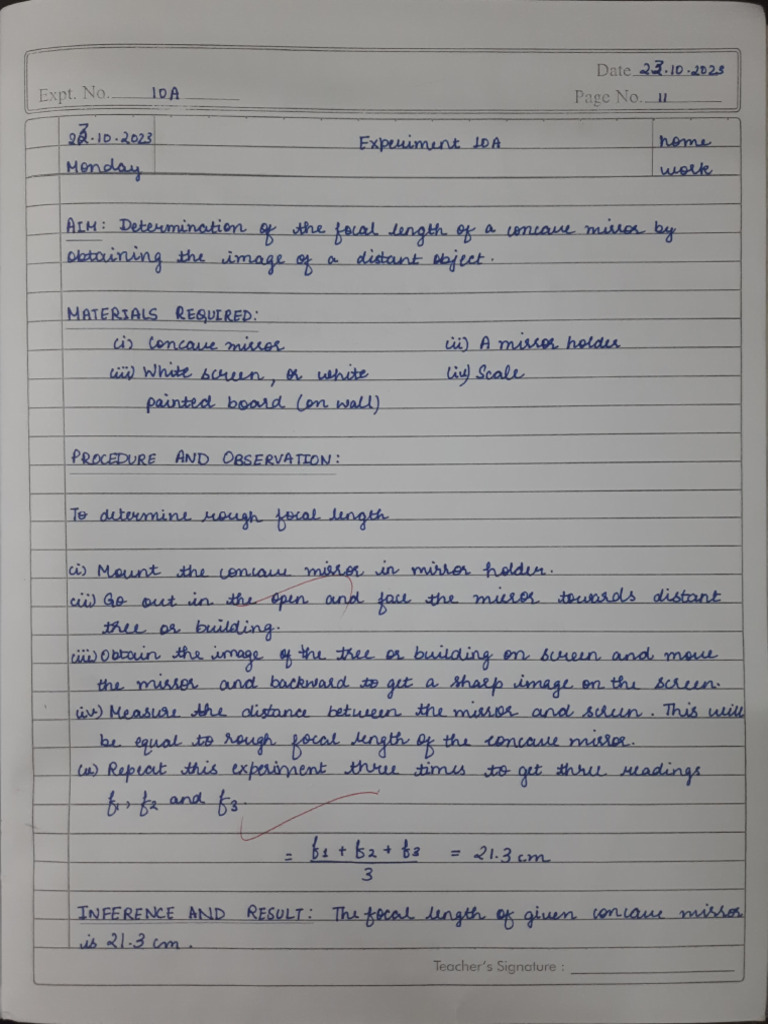 Date 23.10.2023
Expt. No. 10A
Page No. 11
23.10.2023 Experiment 10A home
Monday work
AIM: Determination of the focal length of a concave mirror by
obtaining the image of a distant object.
MATERIALS REQUIRED:
(i) Concave mirror (ii) A mirror holder
(iii) White screen, or white (iv) Scale
painted board (on wall)
PROCEDURE AND OBSERVATION:
To determine rough focal length
(i) Mount the concave mirror in mirror holder.
(ii) Go out in the open and face the mirror towards distant
tree or building.
(iii) Obtain the image of the tree or building on screen and move
the mirror and backward to get a sharp image on the screen.
(iv) Measure the distance between the mirror and screen. This will
be equal to rough focal length of the concave mirror.
(v) Repeat this experiment three times to get three readings
f1, f2 and f3.
= f1 + f2 + f3 = 21.3 cm
3
INFERENCE AND RESULT: The focal length of given concave mirror
is 21.3 cm.
Teacher's Signature :